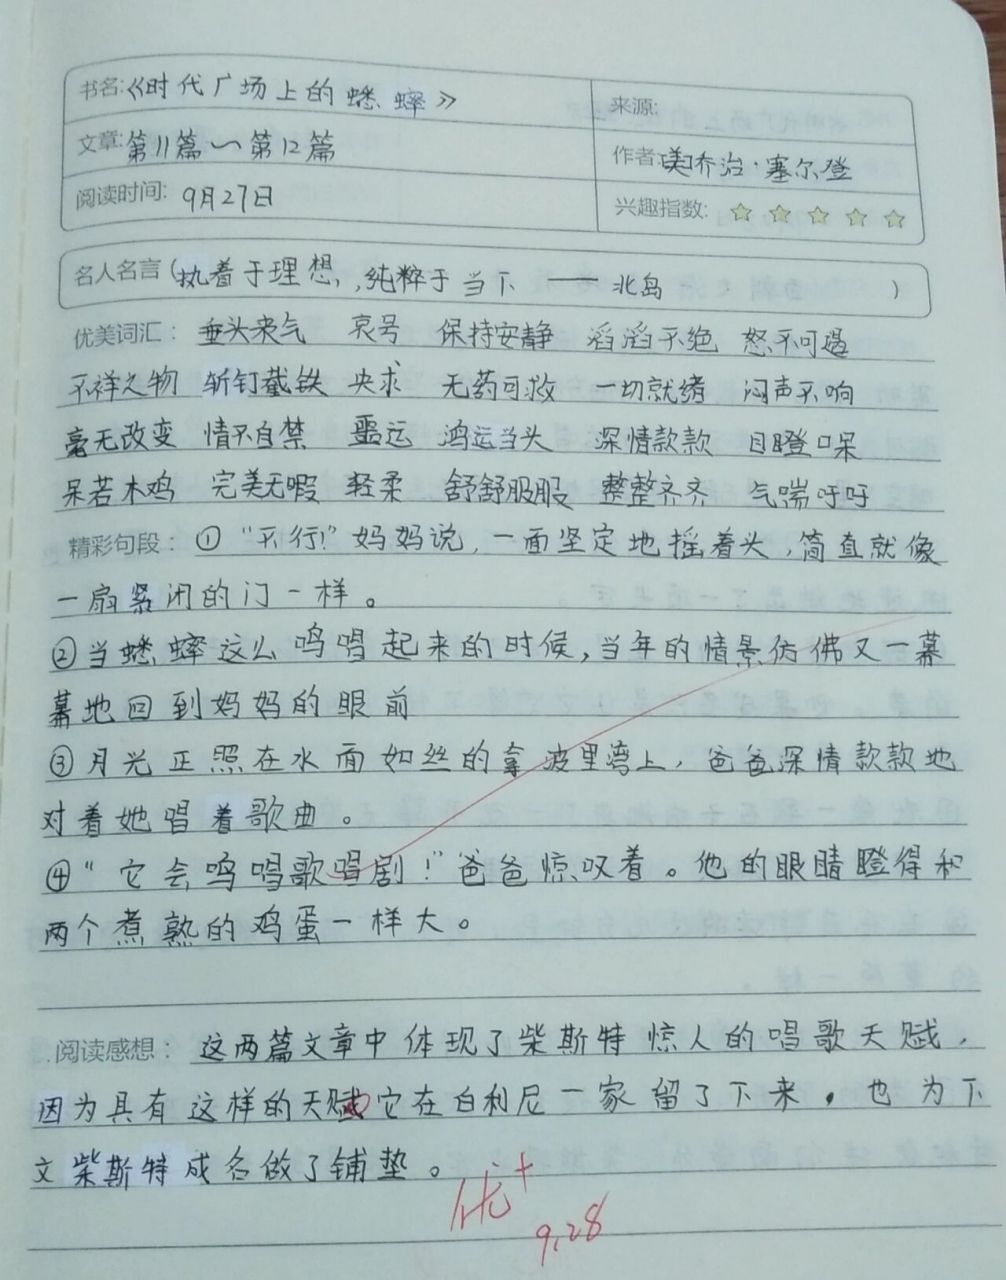 书名:《时代广场上的蟋蟀》 来源:
文章:第11篇~第12篇 作者:美乔治·塞尔登
阅读时间: 9月27日 兴趣指数: ☆ ☆ ☆ ☆ ☆
名人名言(执着于理想,纯粹于当下——北岛)
优美词汇: 垂头丧气 哀号 保持安静 滔滔不绝 怒不可遏
不祥之物 斩钉截铁 央求 无药可救 一切就绪 闷声不响
毫无改变 情不自禁 噩运 鸿运当头 深情款款 目瞪口呆
呆若木鸡 完美无暇 轻柔 舒舒服服 整整齐齐 气喘吁吁
精彩句段: ①“不行!”妈妈说,一面坚定地摇着头,简直就像
一扇紧闭的门一样。
②当蟋蟀这么鸣唱起来的时候,当年的情景仿佛又一幕
幕地回到妈妈的眼前
③月光正照在水面如丝的拿波里湾上,爸爸深情款款地
对着她唱着歌曲。
④“它会鸣唱歌唱剧!”爸爸惊叹着。他的眼睛瞪得和
两个煮熟的鸡蛋一样大。
阅读感想: 这两篇文章中体现了柴斯特惊人的唱歌天赋,
因为具有这样的天赋它在白利尼一家留了下来,也为下
文柴斯特成名做了铺垫。
优+
9.28